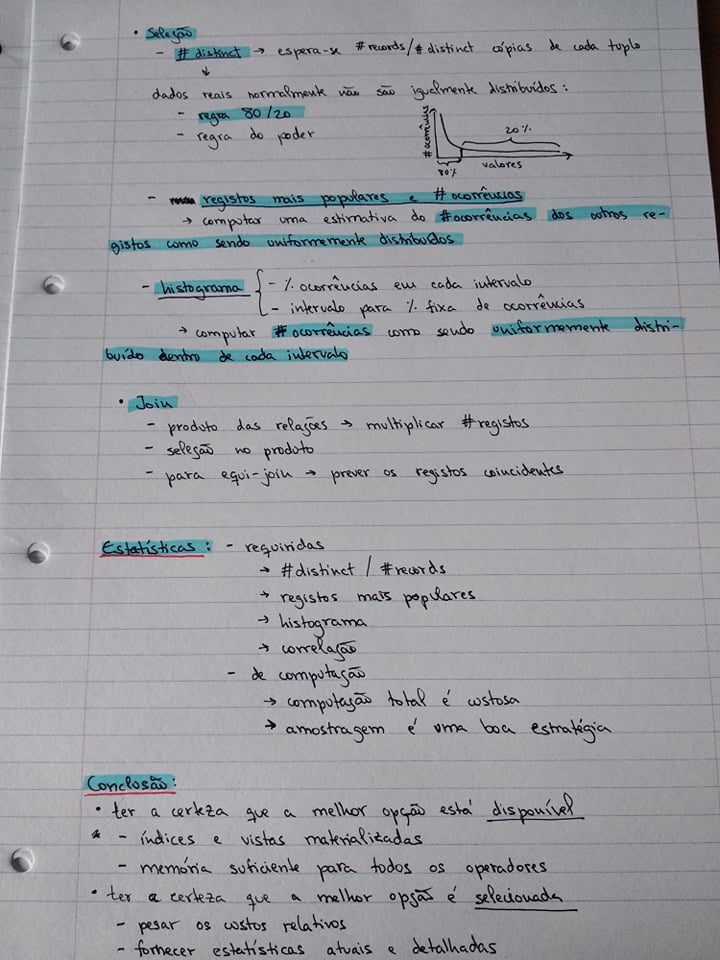 • Seleção
- # distinct → espera-se #records/# distinct cópias de cada tuplo
↓
dados reais normalmente não são igualmente distribuídos:
- regra 80/20
- regra do poder
# ocorrências
20%
80%
valores
- registos mais populares e # ocorrências
→ computar uma estimativa do #ocorrências dos outros re-
gistos como sendo uniformemente distribuídos
- histograma { - % ocorrências em cada intervalo
- intervalo para % fixa de ocorrências
→ computar # ocorrências como sendo uniformemente distri-
buído dentro de cada intervalo
• Join
- produto das relações → multiplicar #registos
- seleção no produto
- para equi-join → prever os registos coincidentes
Estatísticas: - requiridas
→ #distinct / #records
→ registos mais populares
→ histograma
→ correlação
- de computação
→ computação total é custosa
→ amostragem é uma boa estratégia
Conclosão:
• ter a certeza que a melhor opção está disponível
- índices e vistas materializadas
- memória suficiente para todos os operadores
• ter a certeza que a melhor opção é selecionada
- pesar os custos relativos
- fornecer estatísticas atuais e detalhadas